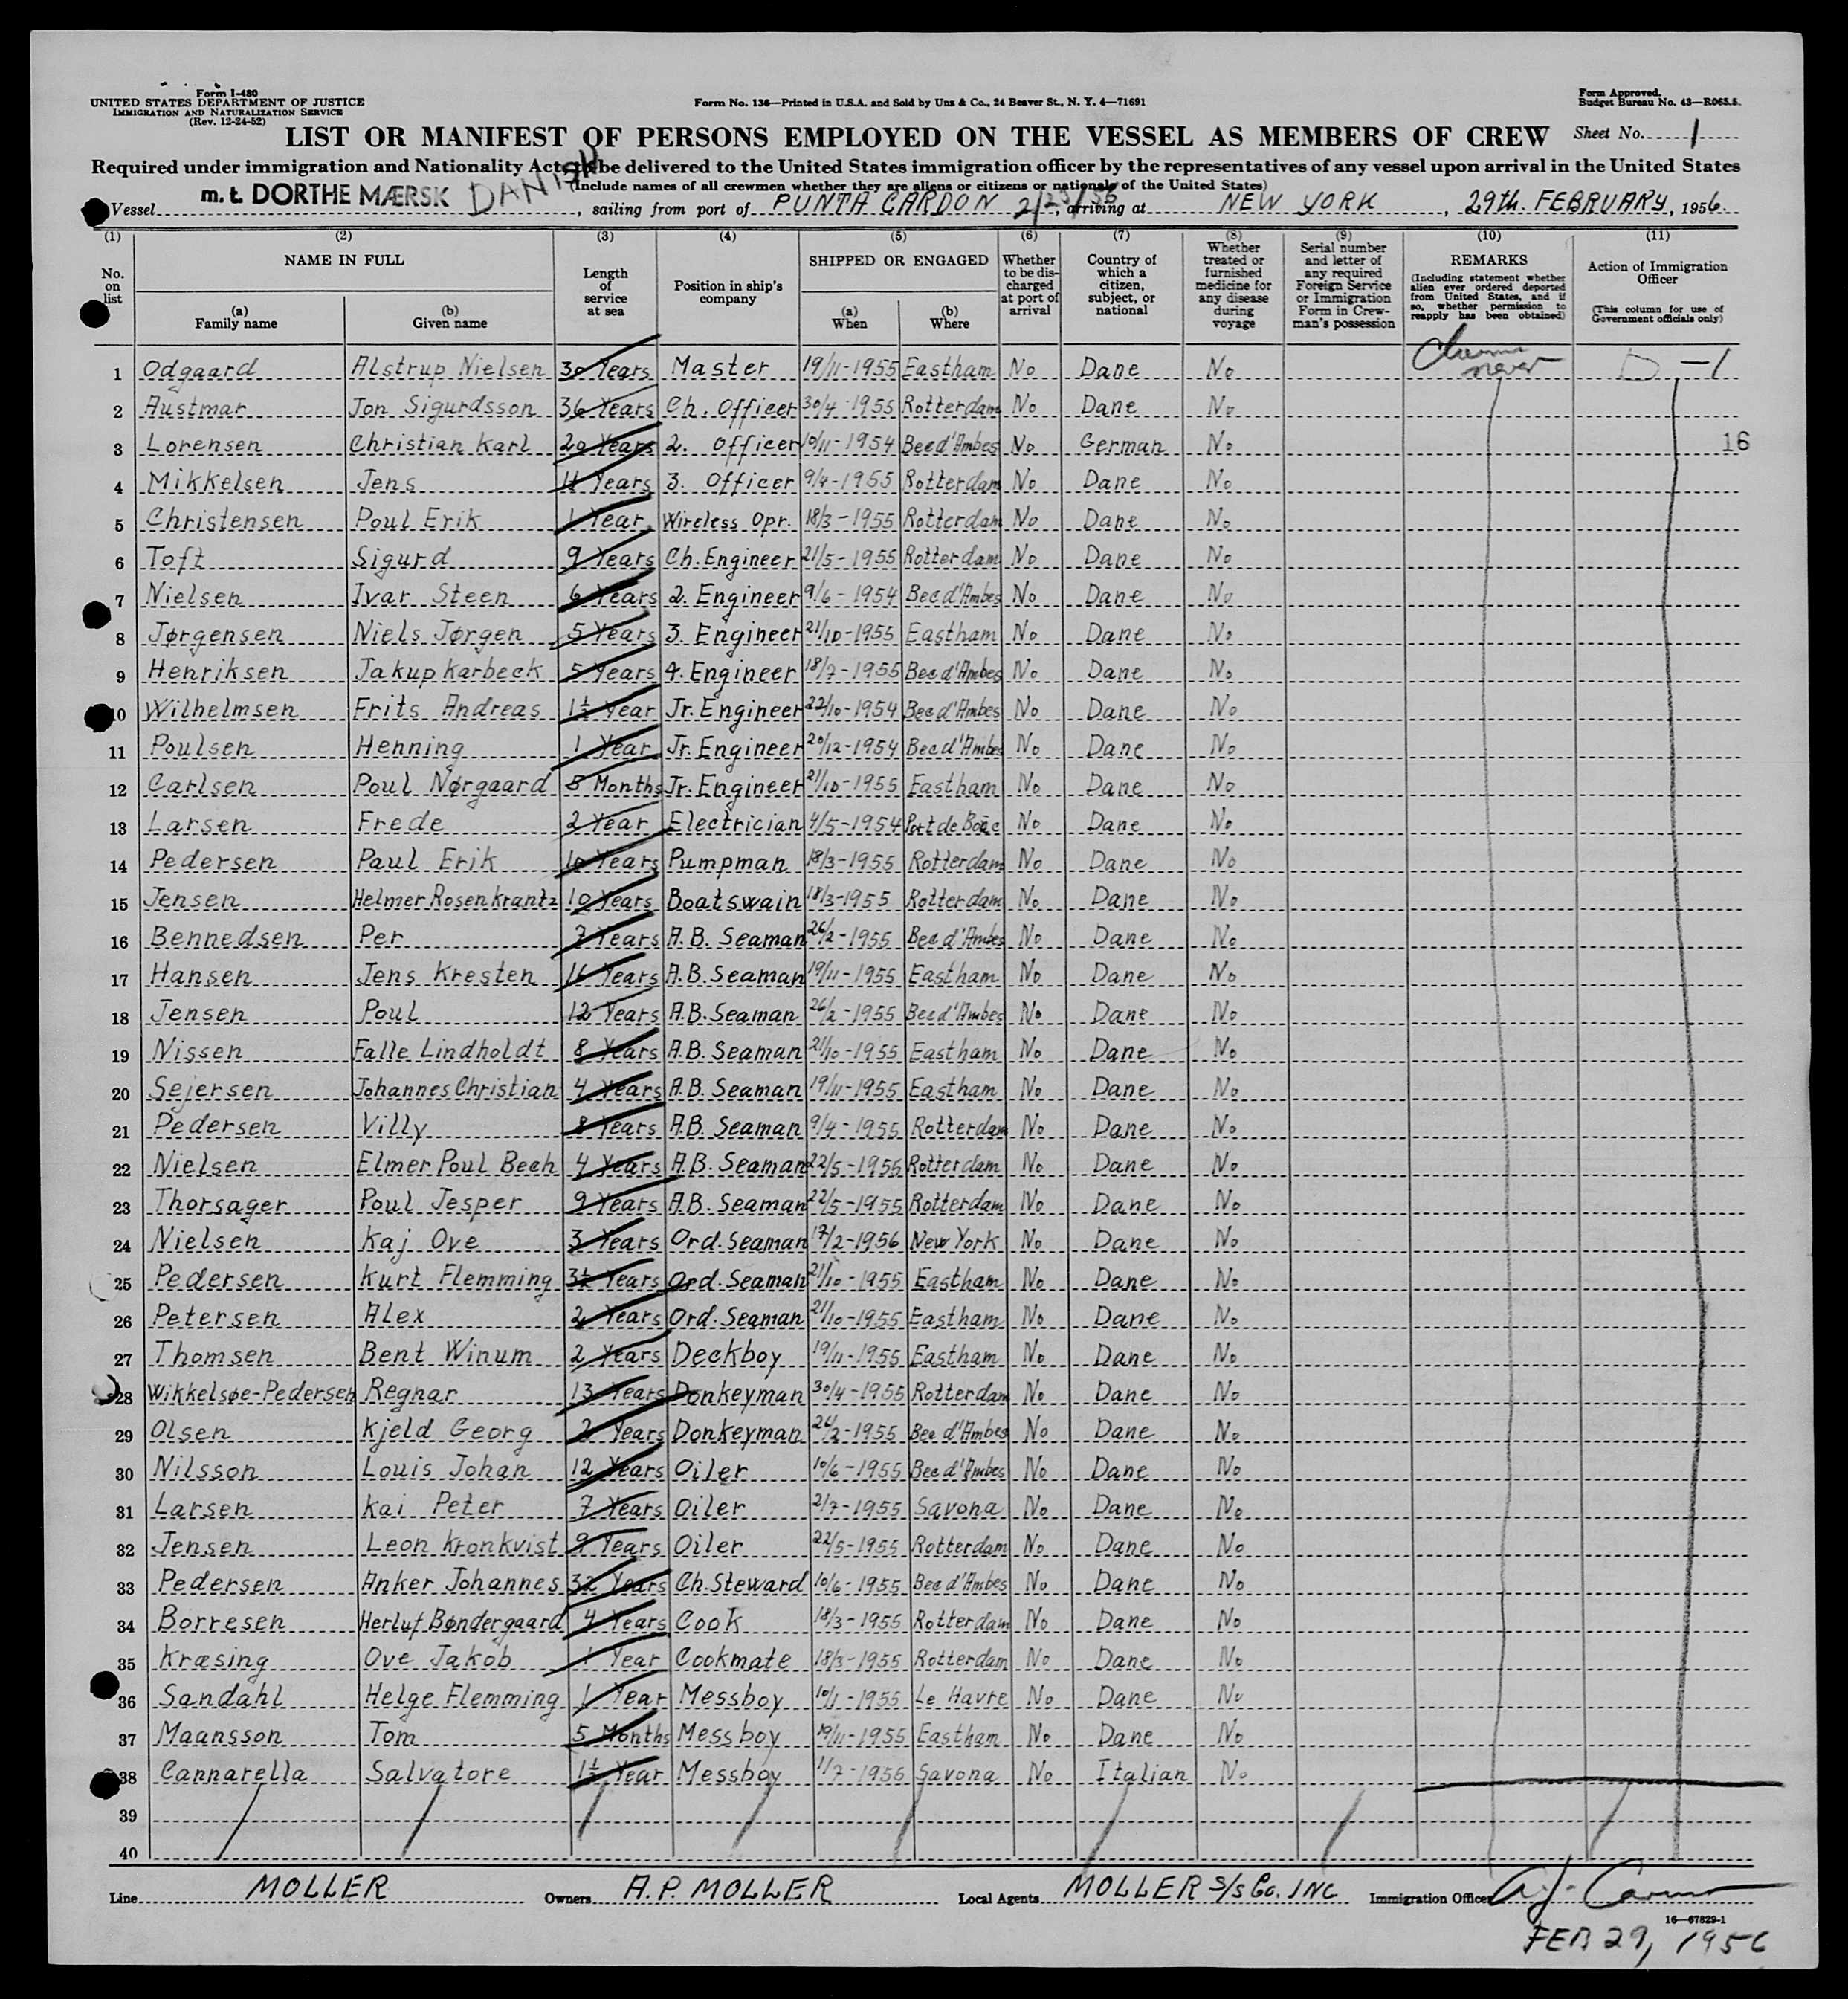 Form I-480
UNITED STATES DEPARTMENT OF JUSTICE
IMMIGRATION AND NATURALIZATION SERVICE
(Rev. 12-24-52)
Form No. 136—Printed in U.S.A. and Sold by Unz & Co., 24 Beaver St., N. Y. 4—71691
Form Approved.
Budget Bureau No. 43—R065.5.
LIST OR MANIFEST OF PERSONS EMPLOYED ON THE VESSEL AS MEMBERS OF CREW
Sheet No. 1
Required under immigration and Nationality Act to be delivered to the United States immigration officer by the representatives of any vessel upon arrival in the United States
(Include names of all crewmen whether they are aliens or citizens or nationals of the United States)
Vessel m.t. DORTHE MÆRSK DANISH, sailing from port of PUNTA CARDON 2/23/56, arriving at NEW YORK, 29th. FEBRUARY, 1956.
(1) (2) (3) (4) (5) (6) (7) (8) (9) (10) (11)
No. on list
NAME IN FULL
(a) Family name
(b) Given name
Length of service at sea
Position in ship's company
SHIPPED OR ENGAGED
(a) When
(b) Where
Whether to be discharged at port of arrival
Country of which a citizen, subject, or national
Whether treated or furnished medicine for any disease during voyage
Serial number and letter of any required Foreign Service or Immigration Form in Crewman's possession
REMARKS
(Including statement whether alien ever ordered deported from United States, and if so, whether permission to reapply has been obtained)
Action of Immigration Officer
(This column for use of Government officials only)
1 Odgaard Alstrup Nielsen 30 Years Master 19/11-1955 Eastham No Dane No never D-1
2 Austmar Jon Sigurdsson 36 Years Ch. Officer 30/4-1955 Rotterdam No Dane No
3 Lorensen Christian Karl 29 Years 2. Officer 10/11-1954 Bec d'Ambes No German No 16
4 Mikkelsen Jens 11 Years 3. Officer 9/4-1955 Rotterdam No Dane No
5 Christensen Poul Erik 1 Year Wireless Opr. 18/3-1955 Rotterdam No Dane No
6 Toft Sigurd 9 Years Ch. Engineer 21/5-1955 Rotterdam No Dane No
7 Nielsen Ivar Steen 6 Years 2. Engineer 9/6-1954 Bec d'Ambes No Dane No
8 Jørgensen Niels Jørgen 5 Years 3. Engineer 21/10-1955 Eastham No Dane No
9 Henriksen Jakup Karbeck 5 Years 4. Engineer 18/7-1955 Bec d'Ambes No Dane No
10 Wilhelmsen Frits Andreas 1½ Year Jr. Engineer 22/10-1954 Bec d'Ambes No Dane No
11 Poulsen Henning 1 Year Jr. Engineer 20/12-1954 Bec d'Ambes No Dane No
12 Carlsen Poul Nørgaard 8 Months Jr. Engineer 21/10-1955 Eastham No Dane No
13 Larsen Frede 2 Year Electrician 4/5-1954 Port de Bouc No Dane No
14 Pedersen Paul Erik 10 Years Pumpman 18/3-1955 Rotterdam No Dane No
15 Jensen Helmer Rosenkrantz 10 Years Boatswain 18/3-1955 Rotterdam No Dane No
16 Bennedsen Per 7 Years A.B. Seaman 26/2-1955 Bec d'Ambes No Dane No
17 Hansen Jens Kresten 16 Years A.B. Seaman 19/11-1955 Eastham No Dane No
18 Jensen Poul 12 Years A.B. Seaman 26/2-1955 Bec d'Ambes No Dane No
19 Nissen Falle Lindholdt 8 Years A.B. Seaman 21/10-1955 Eastham No Dane No
20 Sejersen Johannes Christian 4 Years A.B. Seaman 19/11-1955 Eastham No Dane No
21 Pedersen Villy 8 Years A.B. Seaman 9/4-1955 Rotterdam No Dane No
22 Nielsen Elmer Poul Bech 4 Years A.B. Seaman 22/5-1955 Rotterdam No Dane No
23 Thorsager Poul Jesper 9 Years A.B. Seaman 22/5-1955 Rotterdam No Dane No
24 Nielsen Kaj Ove 3 Years Ord. Seaman 17/2-1956 New York No Dane No
25 Pedersen Kurt Flemming 3½ Years Ord. Seaman 21/10-1955 Eastham No Dane No
26 Petersen Alex 2 Years Ord. Seaman 21/10-1955 Eastham No Dane No
27 Thomsen Bent Winum 2 Years Deckboy 19/11-1955 Eastham No Dane No
28 Wikkelsøe-Pedersen Regnar 13 Years Donkeyman 30/4-1955 Rotterdam No Dane No
29 Olsen Kjeld Georg 2 Years Donkeyman 26/2-1955 Bec d'Ambes No Dane No
30 Nilsson Louis Johan 12 Years Oiler 10/6-1955 Bec d'Ambes No Dane No
31 Larsen Kai Peter 7 Years Oiler 2/7-1955 Savona No Dane No
32 Jensen Leon Kronkvist 9 Years Oiler 22/5-1955 Rotterdam No Dane No
33 Pedersen Anker Johannes 32 Years Ch. Steward 10/6-1955 Bec d'Ambes No Dane No
34 Borresen Herluf Bøndergaard 4 Years Cook 18/3-1955 Rotterdam No Dane No
35 Kræsing Ove Jakob 1 Year Cookmate 18/3-1955 Rotterdam No Dane No
36 Sandahl Helge Flemming 1 Year Messboy 10/1-1955 Le Havre No Dane No
37 Maansson Tom 5 Months Messboy 19/11-1955 Eastham No Dane No
38 Cannarella Salvatore 1½ Year Messboy 1/7-1955 Savona No Italian No
39
40
Line MOLLER Owners A.P. MOLLER Local Agents MOLLER S/S Co. INC Immigration Officer
16—67829-1
FEB 29, 1956